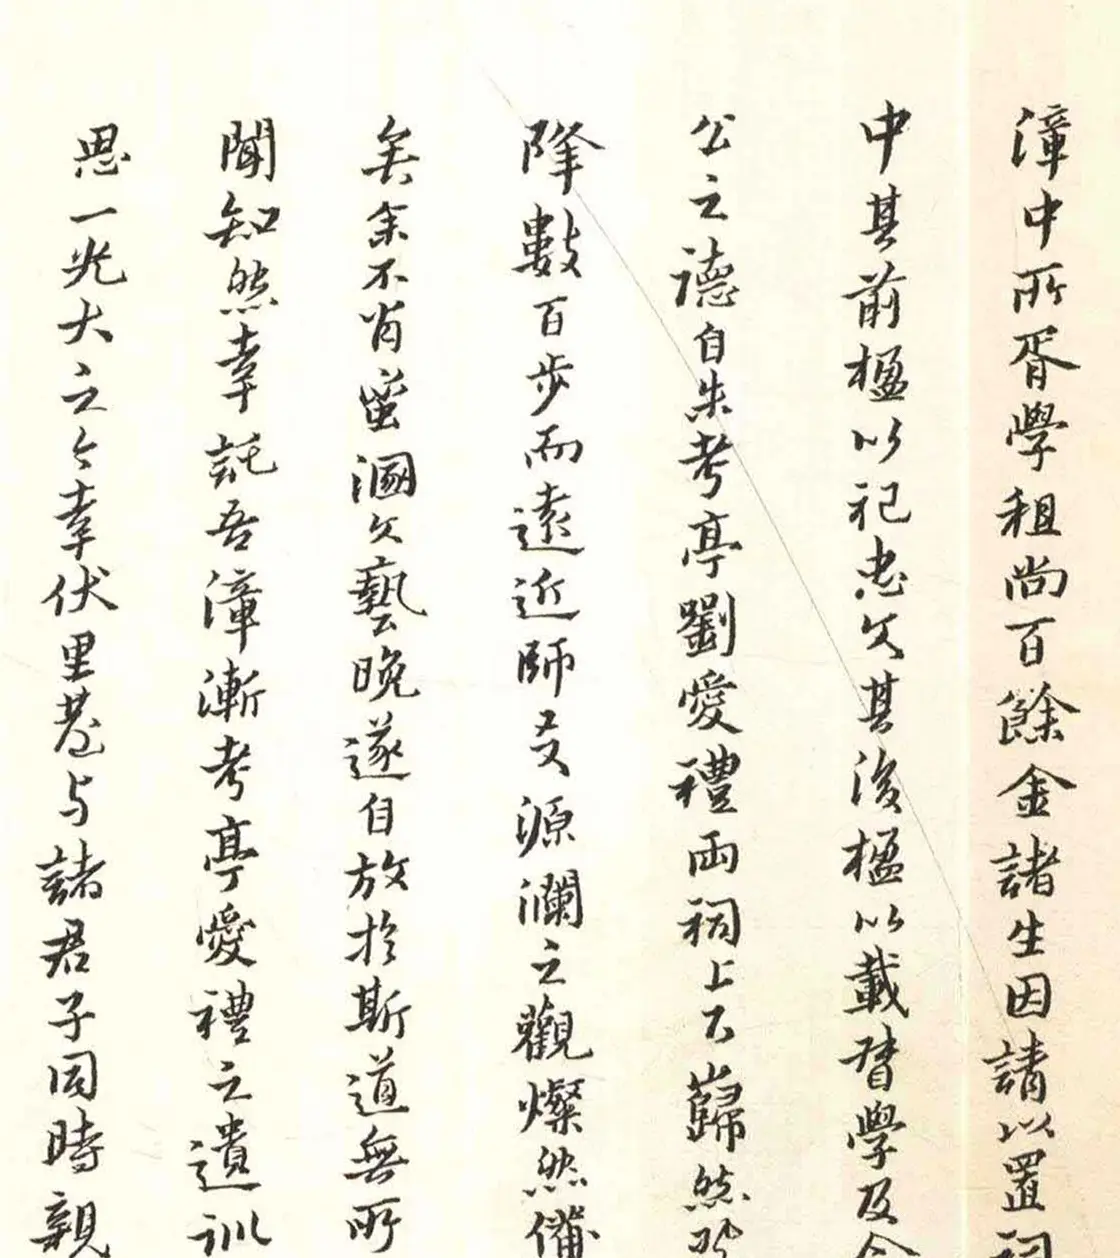 漳中所胥學租尚百餘金諸生因請以置祠
中其前楹以祀忠父其後楹以載督學及今
公之德自朱考亭劉愛禮兩祠上下巋然
降數百步而遠近師友源瀾之觀燦然備
矣余不肖蜚溷父藝晚遂自放於斯道無所
聞知然幸託吾漳漸考亭愛禮之遺訓
思一光大之今幸伏里巷与諸君子同時親